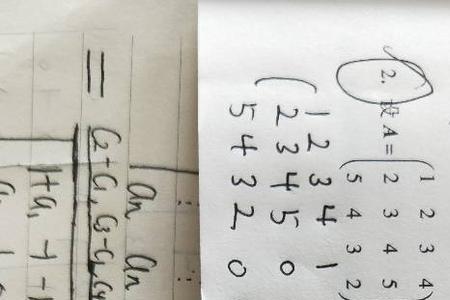 2. 设 A =
1 2 3 4
2 3 4 5
5 4 3 2
1 2 3 4 1
2 3 4 5 0
5 4 3 2 0
an an
=
C2-C1, C3-C1, C4
1+a1 -1 -1